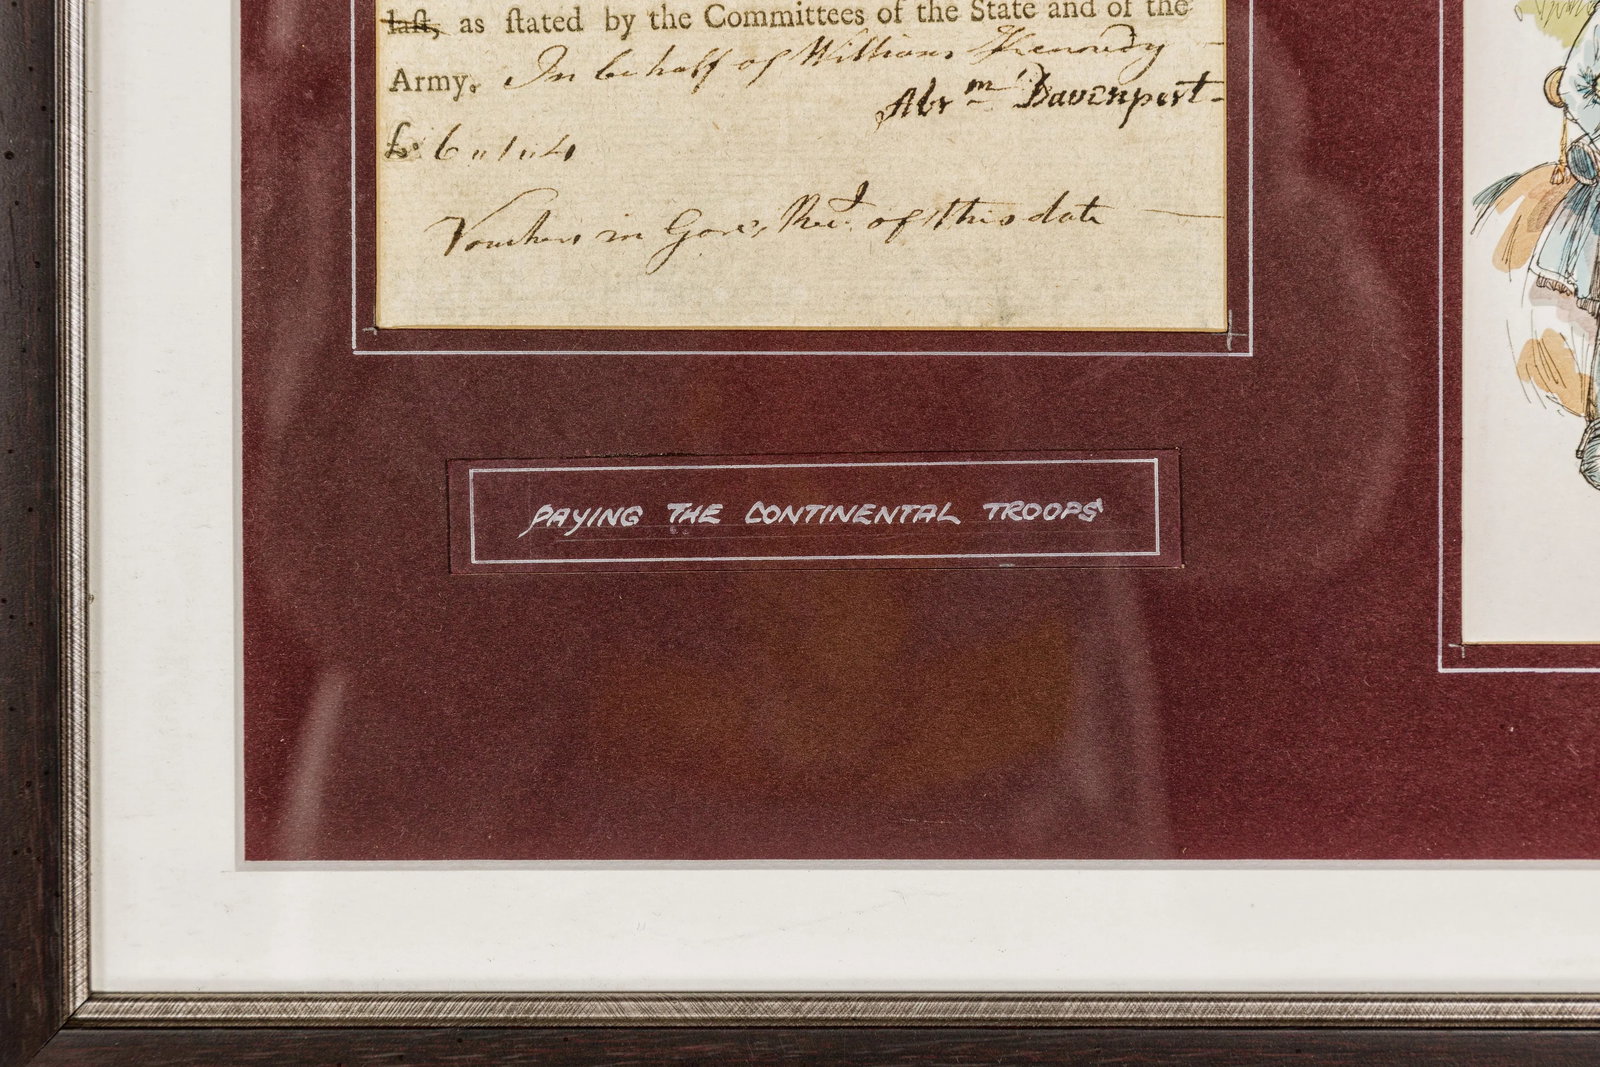 laſt, as ſtated by the Committees of the State and of the
Army. In behalf of William Kennedy
Abrm Davenport
£ 6 " 1 " 4
Vouchers in Genl. Recd. of this date
PAYING THE CONTINENTAL TROOPS